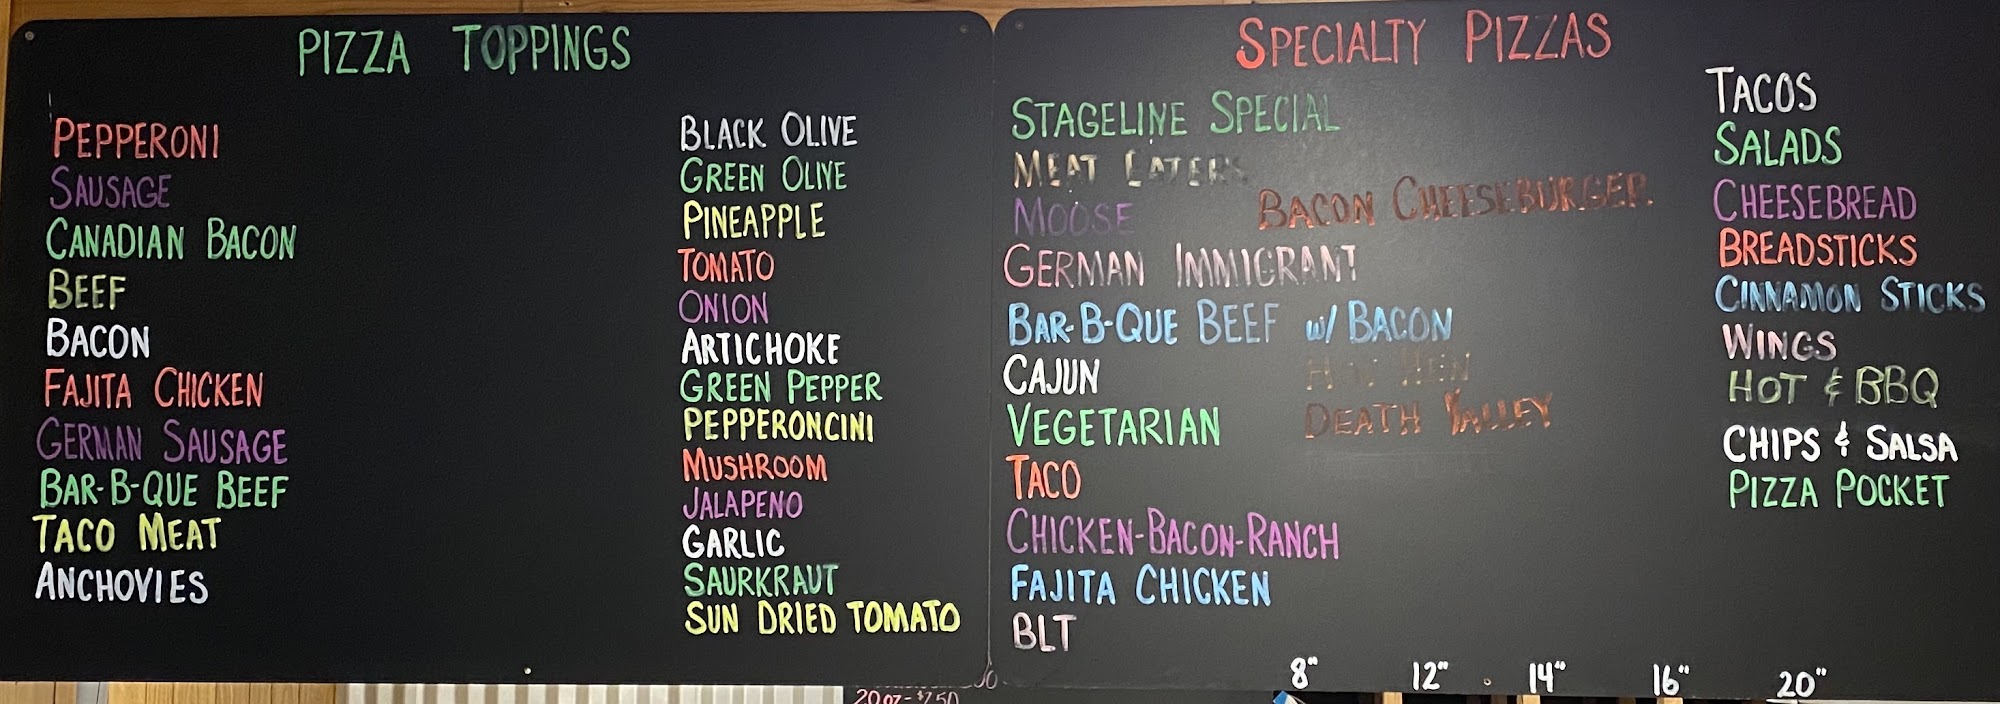 PIZZA TOPPINGS
PEPPERONI
SAUSAGE
CANADIAN BACON
BEEF
BACON
FAJITA CHICKEN
GERMAN SAUSAGE
BAR-B-QUE BEEF
TACO MEAT
ANCHOVIES
BLACK OLIVE
GREEN OLIVE
PINEAPPLE
TOMATO
ONION
ARTICHOKE
GREEN PEPPER
PEPPERONCINI
MUSHROOM
JALAPENO
GARLIC
SAURKRAUT
SUN DRIED TOMATO
SPECIALTY PIZZAS
STAGELINE SPECIAL
MEAT EATERS
MOOSE
GERMAN IMMIGRANT
BAR-B-QUE BEEF w/ BACON
CAJUN
VEGETARIAN
TACO
CHICKEN-BACON-RANCH
FAJITA CHICKEN
BLT
BACON CHEESEBURGER
HEN
DEATH VALLEY
TACOS
SALADS
CHEESEBREAD
BREADSTICKS
CINNAMON STICKS
WINGS
HOT & BBQ
CHIPS & SALSA
PIZZA POCKET
8" 12" 14" 16" 20"
20 oz - $2.50